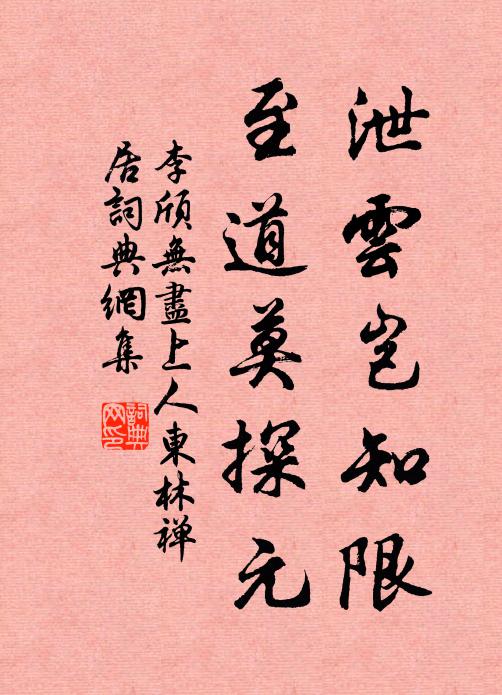 泄雲豈知限
至道莫探元
李頎無盡上人東林禅
居詞典網集
詞典
网印